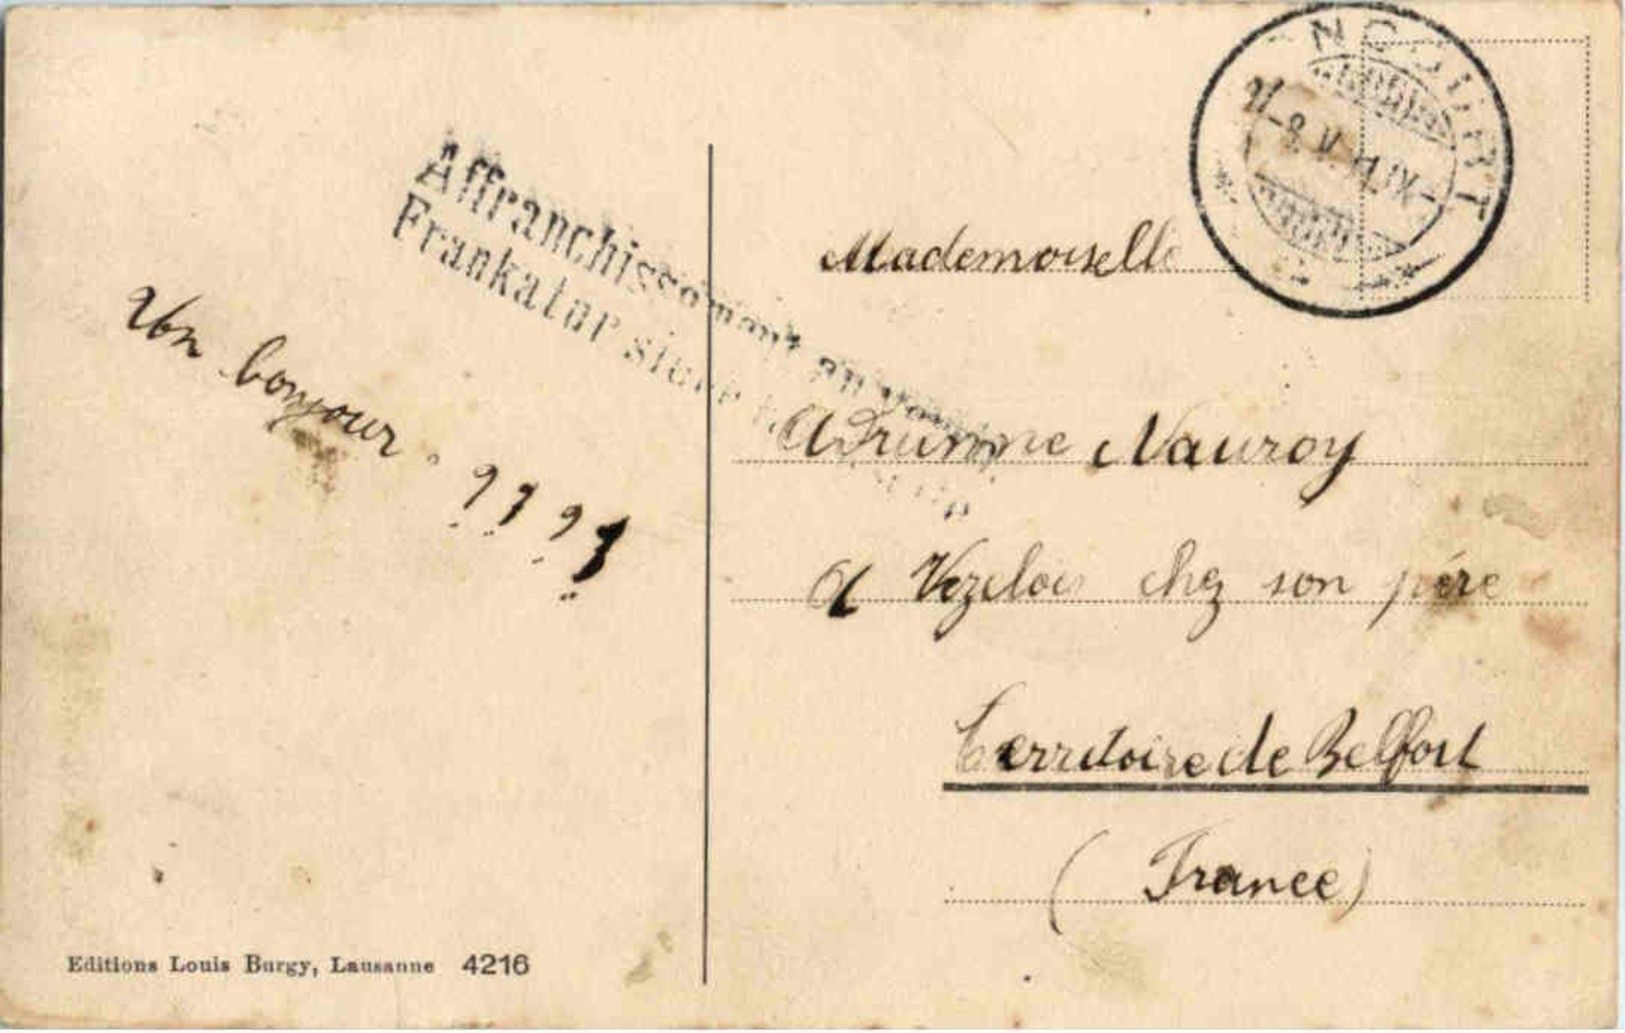 Affranchissement au verso
Frankatur siehe
Un bonjour. ????
Mademoiselle
Nauroy
a Vezelois chez son père
Territoire de Belfort
(France)
Editions Louis Burgy, Lausanne 4216